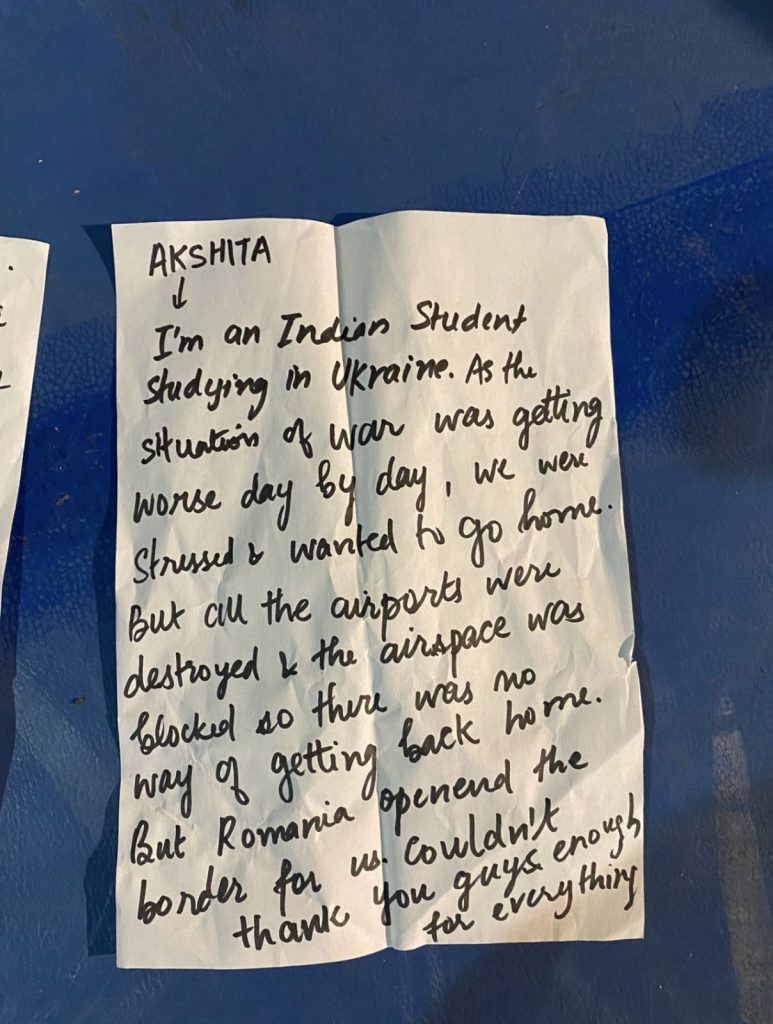 AKSHITA
↓
I'm an Indian Student
studying in Ukraine. As the
situation of war was getting
worse day by day, we were
stressed & wanted to go home.
But all the airports were
destroyed & the airspace was
blocked so there was no
way of getting back home.
But Romania openend the
border for us. Couldn't
thank you guys enough
for everything